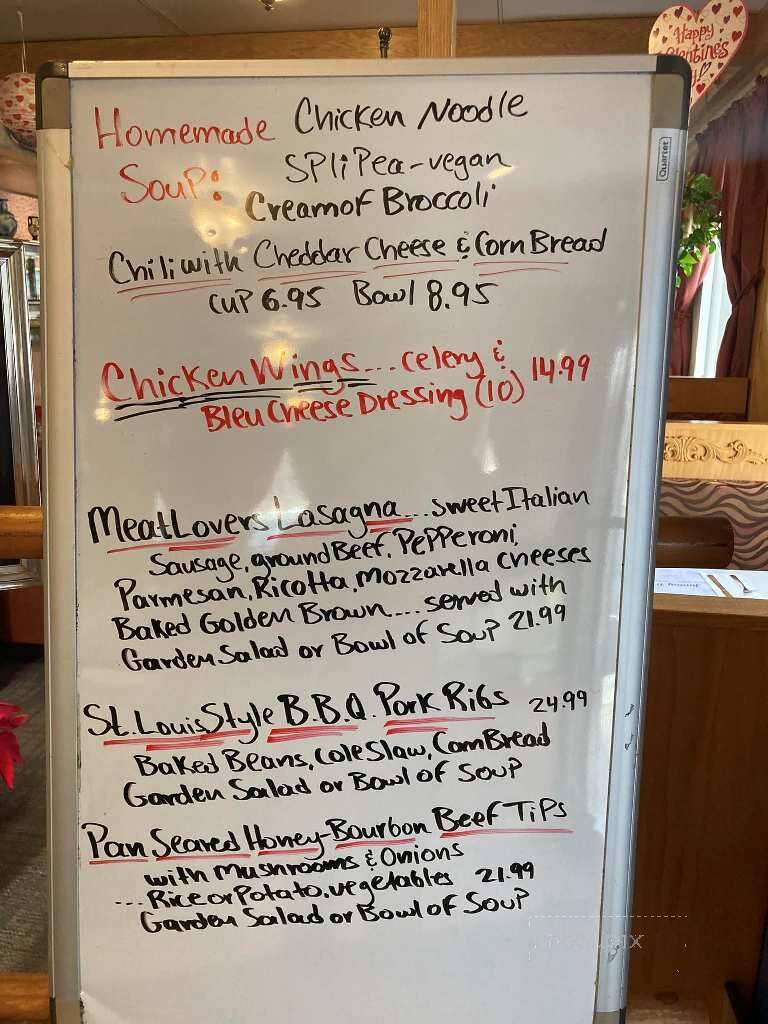 Happy
Valentine's
Quartet
Homemade Chicken Noodle
Soup: SPliPea-vegan
Cream of Broccoli
Chili with Cheddar Cheese & Corn Bread
CUP 6.95 Bowl 8.95
Chicken Wings... celery & 14.99
Bleu Cheese Dressing (10)
Meat Lovers Lasagna... sweet Italian
Sausage, ground Beef, Pepperoni,
Parmesan, Ricotta, Mozzarella cheeses
Baked Golden Brown.... served with
Garden Salad or Bowl of Soup 21.99
St. Louis Style B.B.Q. Pork Ribs 24.99
Baked Beans, Cole Slaw, Corn Bread
Garden Salad or Bowl of Soup
Pan Seared Honey-Bourbon Beef Tips
with Mushrooms & Onions
... Rice or Potato, vegetables 21.99
Garden Salad or Bowl of Soup